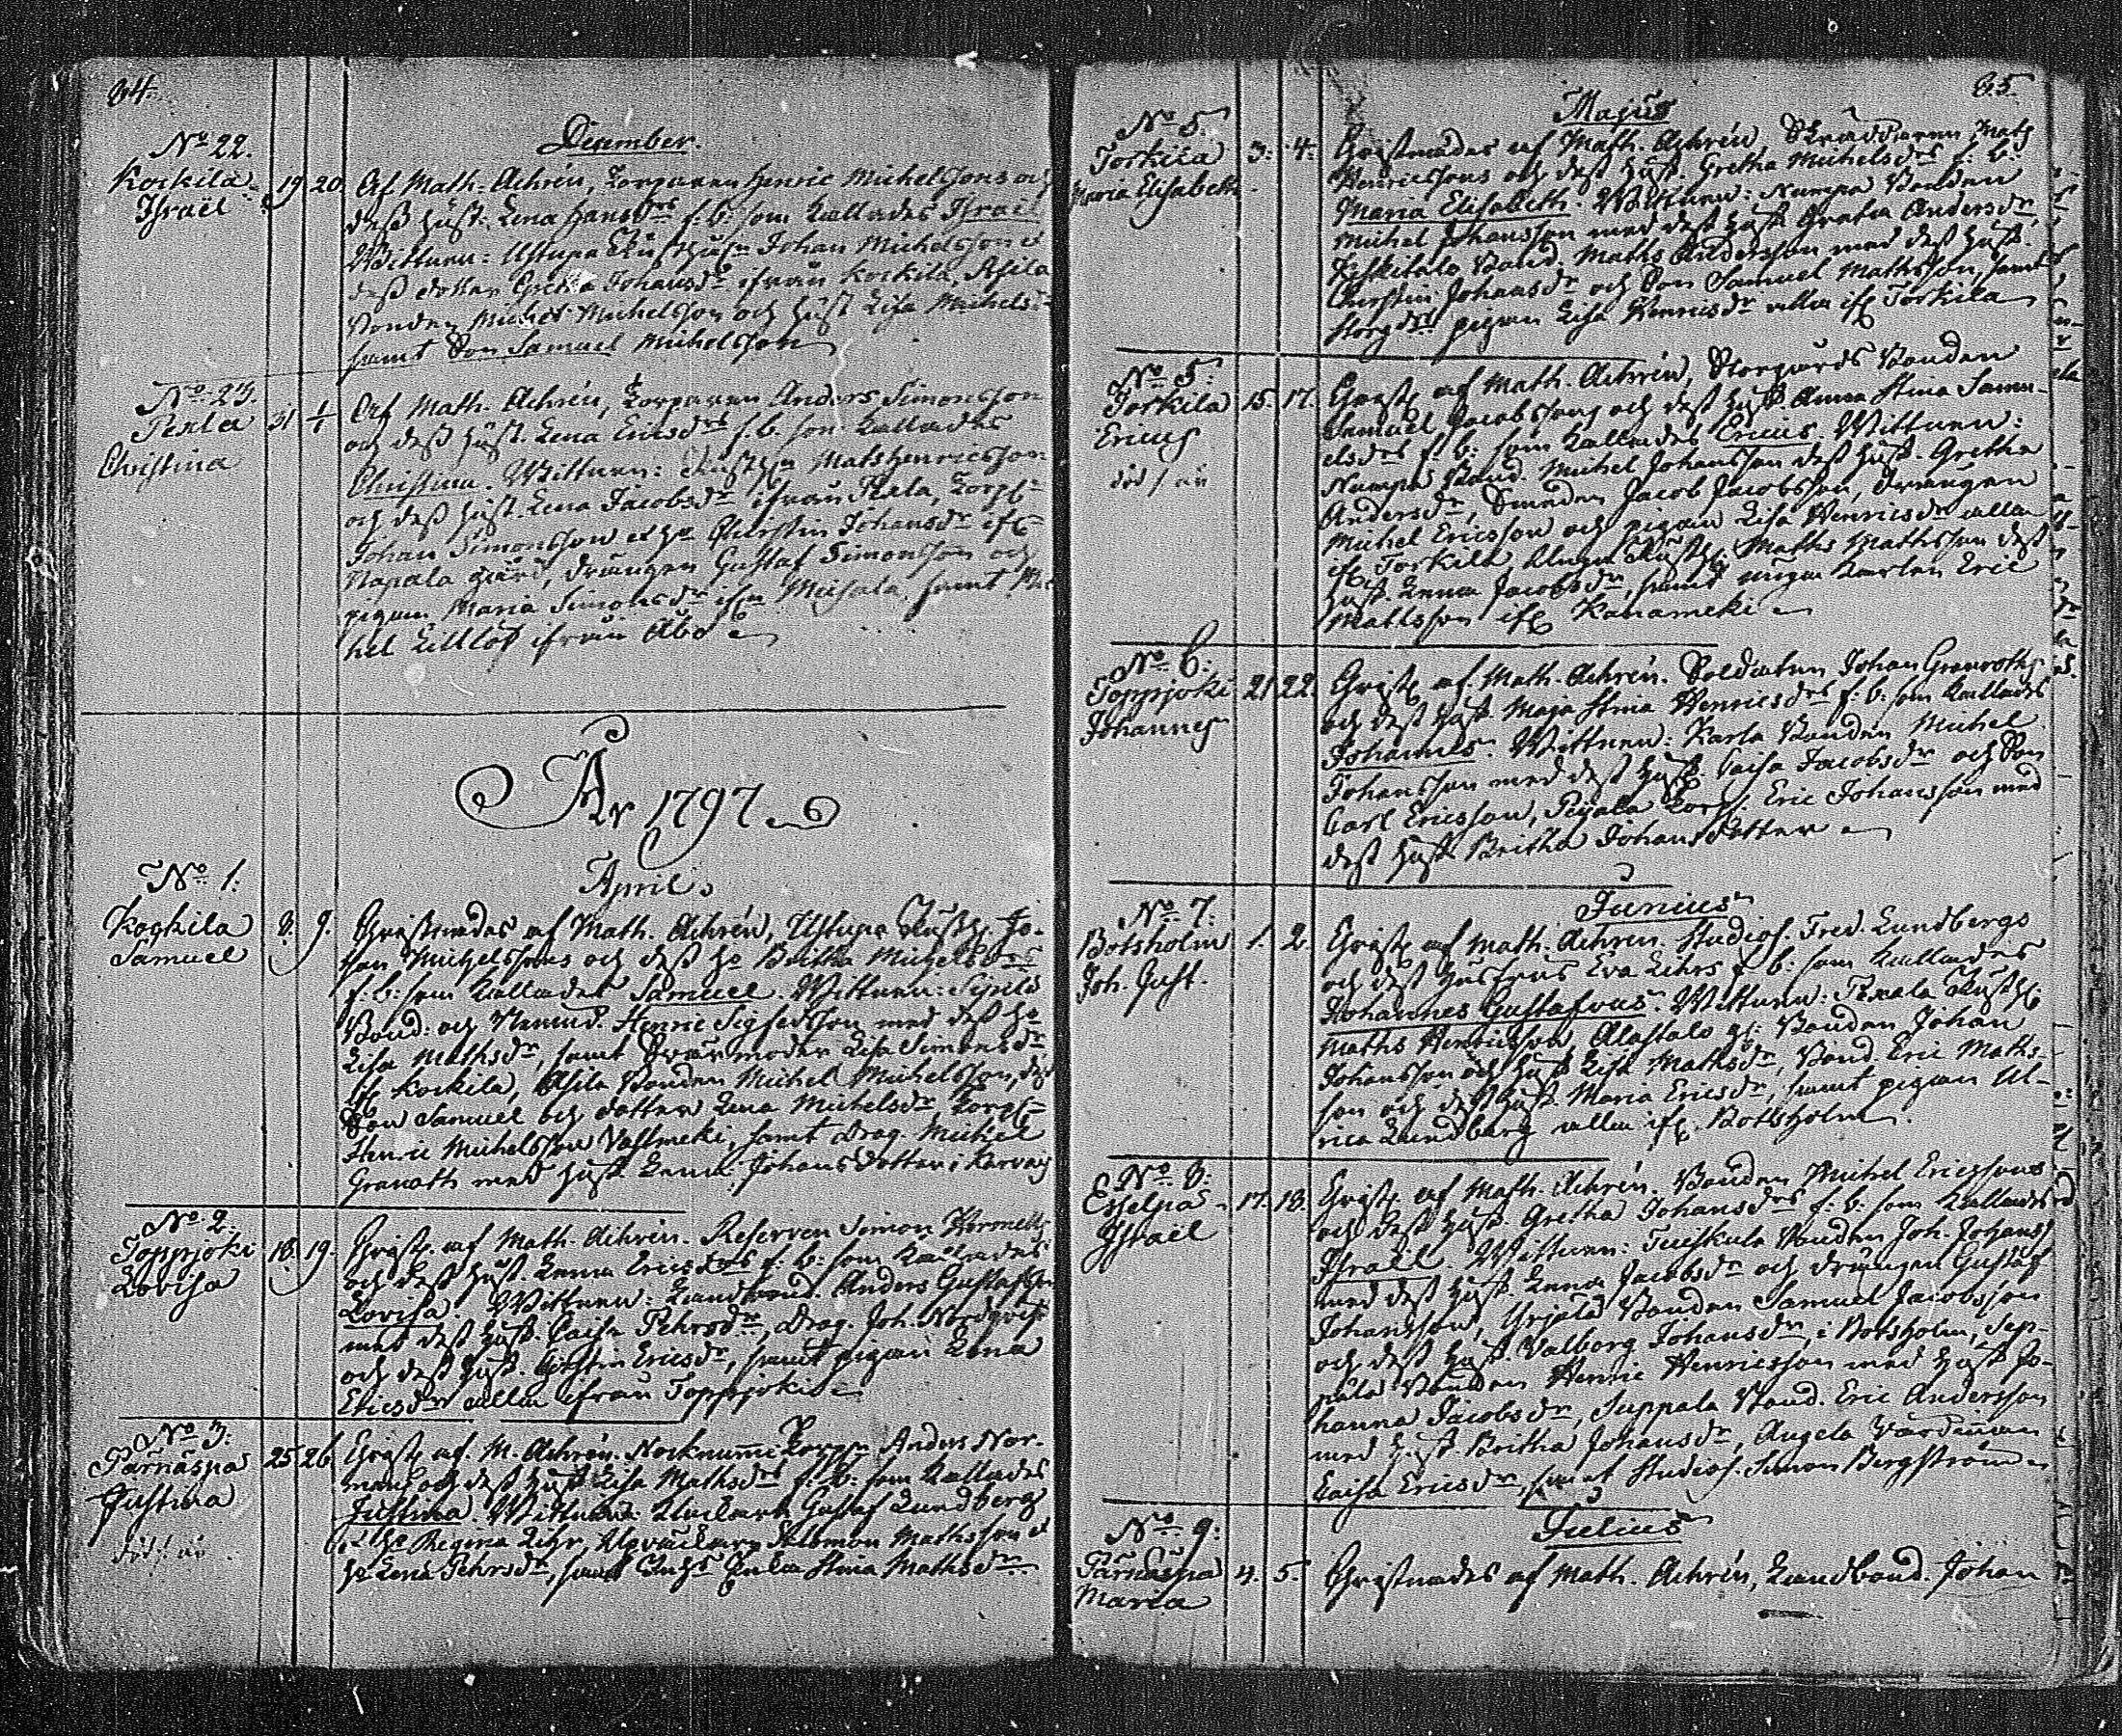 84.
December.
No 22.
Kockila
Israël
19 20. Af Math. Achrén, Torparen Henric Michelssons och
dess hust. Lena Hansdrs f. b. som kallades Israël
Wittnen: Ustupa Rusthåll. Johan Michelsson &
dess dotter Gretha Johansdr ifrån Kockila, Asila
Bonden Michel Michelsson och hust Lisa Michelsdr
samt Son Samuel Michelsson
No 23.
Pexla
Christina
31 1/1 Af Math. Achrén, Torparen Anders Simonsson
och dess hust. Lena Ericsdrs f. b. som kallades
Christina. Wittnen: Matshenricsson
och dess hust. Lena Jacobsdr ifrån Pexla, Torp.
Johan Simonsson et ho Christin Johansdr if
Napala gård, drängen Gustaf Simonsson och
pigan Maria Simonsdr samt Mic
hel Lillløf ifrån Åbo
År 1797
April
No 1:
Koskila
Samuel
8. 9. Christnades af Math. Achrén, Ustupa Rusth. Jo-
han Michelssons och dess ho Britha Michelsdrs
f. b: som kallades Samuel. Wittnen:
Bond: och Nemnd. Henric Sigfredsson med dess ho
Lisa Mathsdr, samt Svärmoder Lisa Simonsdr
if Kockila, Asila Bonden Michel Michelsson, dess
Son Samuel och dotter Lena Michelsdr, Torp.
Henric Michelsson samt Drag. Michel
Granath med hust. Lena Johansdotter i
No 2:
Toppjoki
Lovisa
18. 19. Christ. af Math. Achrén. Reserven Simon
och dess hust. Lena Ericsdrs f: b: som kallades
Lovisa. Wittnen: Landbond. Anders Gustafsson
med dess hust. Caisa Pehrsdr, Drag. Joh. Nordqvist
och dess hust. Christin Ericsdr, samt pigan Lena
Ericsdr alla ifrån Toppjoki
No 3:
Pärnäspä
Justina
död
25 26. Christ. af. M. Achrén. Torp. Anders Nor-
mans och dess hust Lisa Mathsdrs f: b: som kallades
Justina. Wittnen: Gustaf Lundberg
& ho Regina Lihr, Salomon Mathsson &
ho Lena Pehrsdr, samt Stina Mathsdr
85.
Majus
No 5.
Torkila
Maria Elisabeth
3. 4. Christnades af Math. Achrén, Skräddaren Mats
Henricssons och dess hust. Gretha Michelsdrs f. b:
Maria Elisabeth. Wittnen: Numpa Bonden
Michel Johansson med dess hust Gretha Andersdr,
Bond. Maths Andersson med dess hust.
Christin Johansdr och Son Samuel Mathsson, samt
pigan Lisa Henricsdr alla if Torkila
No 5:
Torkila
Ericus
död
15. 17. Christ. af Math. Achrén, Storgårds Bonden
Samuel Jacobssons och dess hust. Anna Stina Samu-
elsdrs f: b: som kallades Ericus. Wittnen:
Numpa Bond. Michel Johansson dess hust. Gretha
Andersdr, Smeden Jacob Jacobsson, drängen
Michel Ericsson och pigan Lisa Henricsdr alla
if Torkila, Rusth. Maths Mathsson dess
hust. Lena Jacobsdr, samt unga karlen Eric
Mattsson if Kanameki
No 6:
Toppjoki
Johannes
21 22. Christ. af. Math. Achrén. Soldaten Johan Granroths
och dess hust. Maja Stina Henricsdrs f: b: som kallades
Johannes. Wittnen: Karla Bonden Michel
Johansson med dess hust. Caisa Jacobsdr och Son
Carl Ericsson, Torp. Eric Johansson med
dess hust Britha Johansdotter
Junius
No 7:
Botsholm
Joh. Gust.
1. 2. Christ. af Math. Achrén. Studios. Fred. Lundbergs
och dess hustrus Eva Lihrs f: b: som kallades
Johannes Gustafvus. Wittnen: Pexala Rusth.
Maths Henricsson, Alastalo Bonden Johan
Johansson och hust Lisa Mathsdr, Bond. Eric Maths-
son och dess hust. Maria Ericsdr, samt pigan Ul-
rica Lundberg alla if. Bottsholm.
No 8:
Esselpä
Israël
17. 18. Christ. af Math. Achrén. Bonden Michel Ericssons
och dess hust. Gretha Johansdrs f: b: som kallades
Israël. Wittnen: Tuiskula Bonden Joh. Johanss
med dess hust. Lena Jacobsdr och drängen Gustaf
Johansson, Yrjälä Bonden Samuel Jacobsson
och dess hust. Valborg Johansdr, i Botsholm, Sep-
pälä Bonden Henric Henricsson med hust Jo-
hanna Jacobsdr, Suppala Bond. Eric Andersson
med hust Britha Johansdr, Angela
Caisa Ericsdr, samt Studios. Simon Bergström
Julius
No 9:
Pärnäspä
Maria
4. 5. Christnades af Math. Achrén, Landbond. Johan